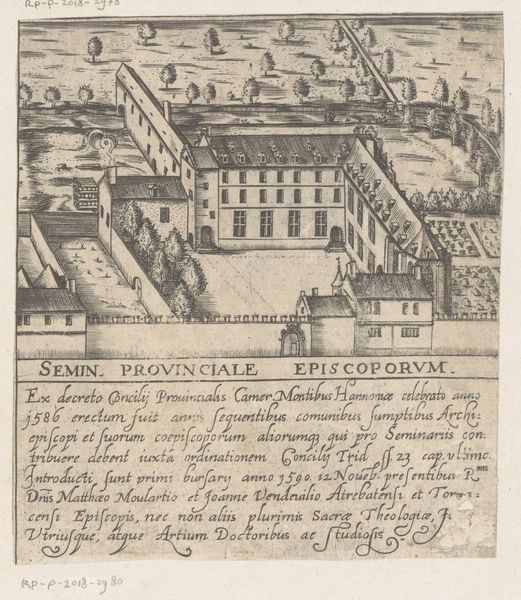 RP-P-2018-2978
SEMIN. PROVINCIALE EPISCOPORVM.
Ex decreto Concilij Prouincialis Camer. Montibus Hannoniæ celebrato anno
1586 erectum fuit annis sequentibus comunibus sumptibus Archi:
episcopi et suorum coepiscoporum aliorumq3 qui pro Seminariis con:
tribuere debent iuxtà ordinationem Concilij Trid ss 23 cap. vltimo.
Introducti, sunt primi bursary anno 1590. 12 Noueb. presentibus R mis
Dnis Matthæo Moulartio et Joanne Vendeuilio Atrebatensi et Tor
censi Episcopis, nec non aliis plurimis Sacræ Theologiæ,
Vtriusque, atque Artium Doctoribus ac studiosis
RP-P-2018-2980